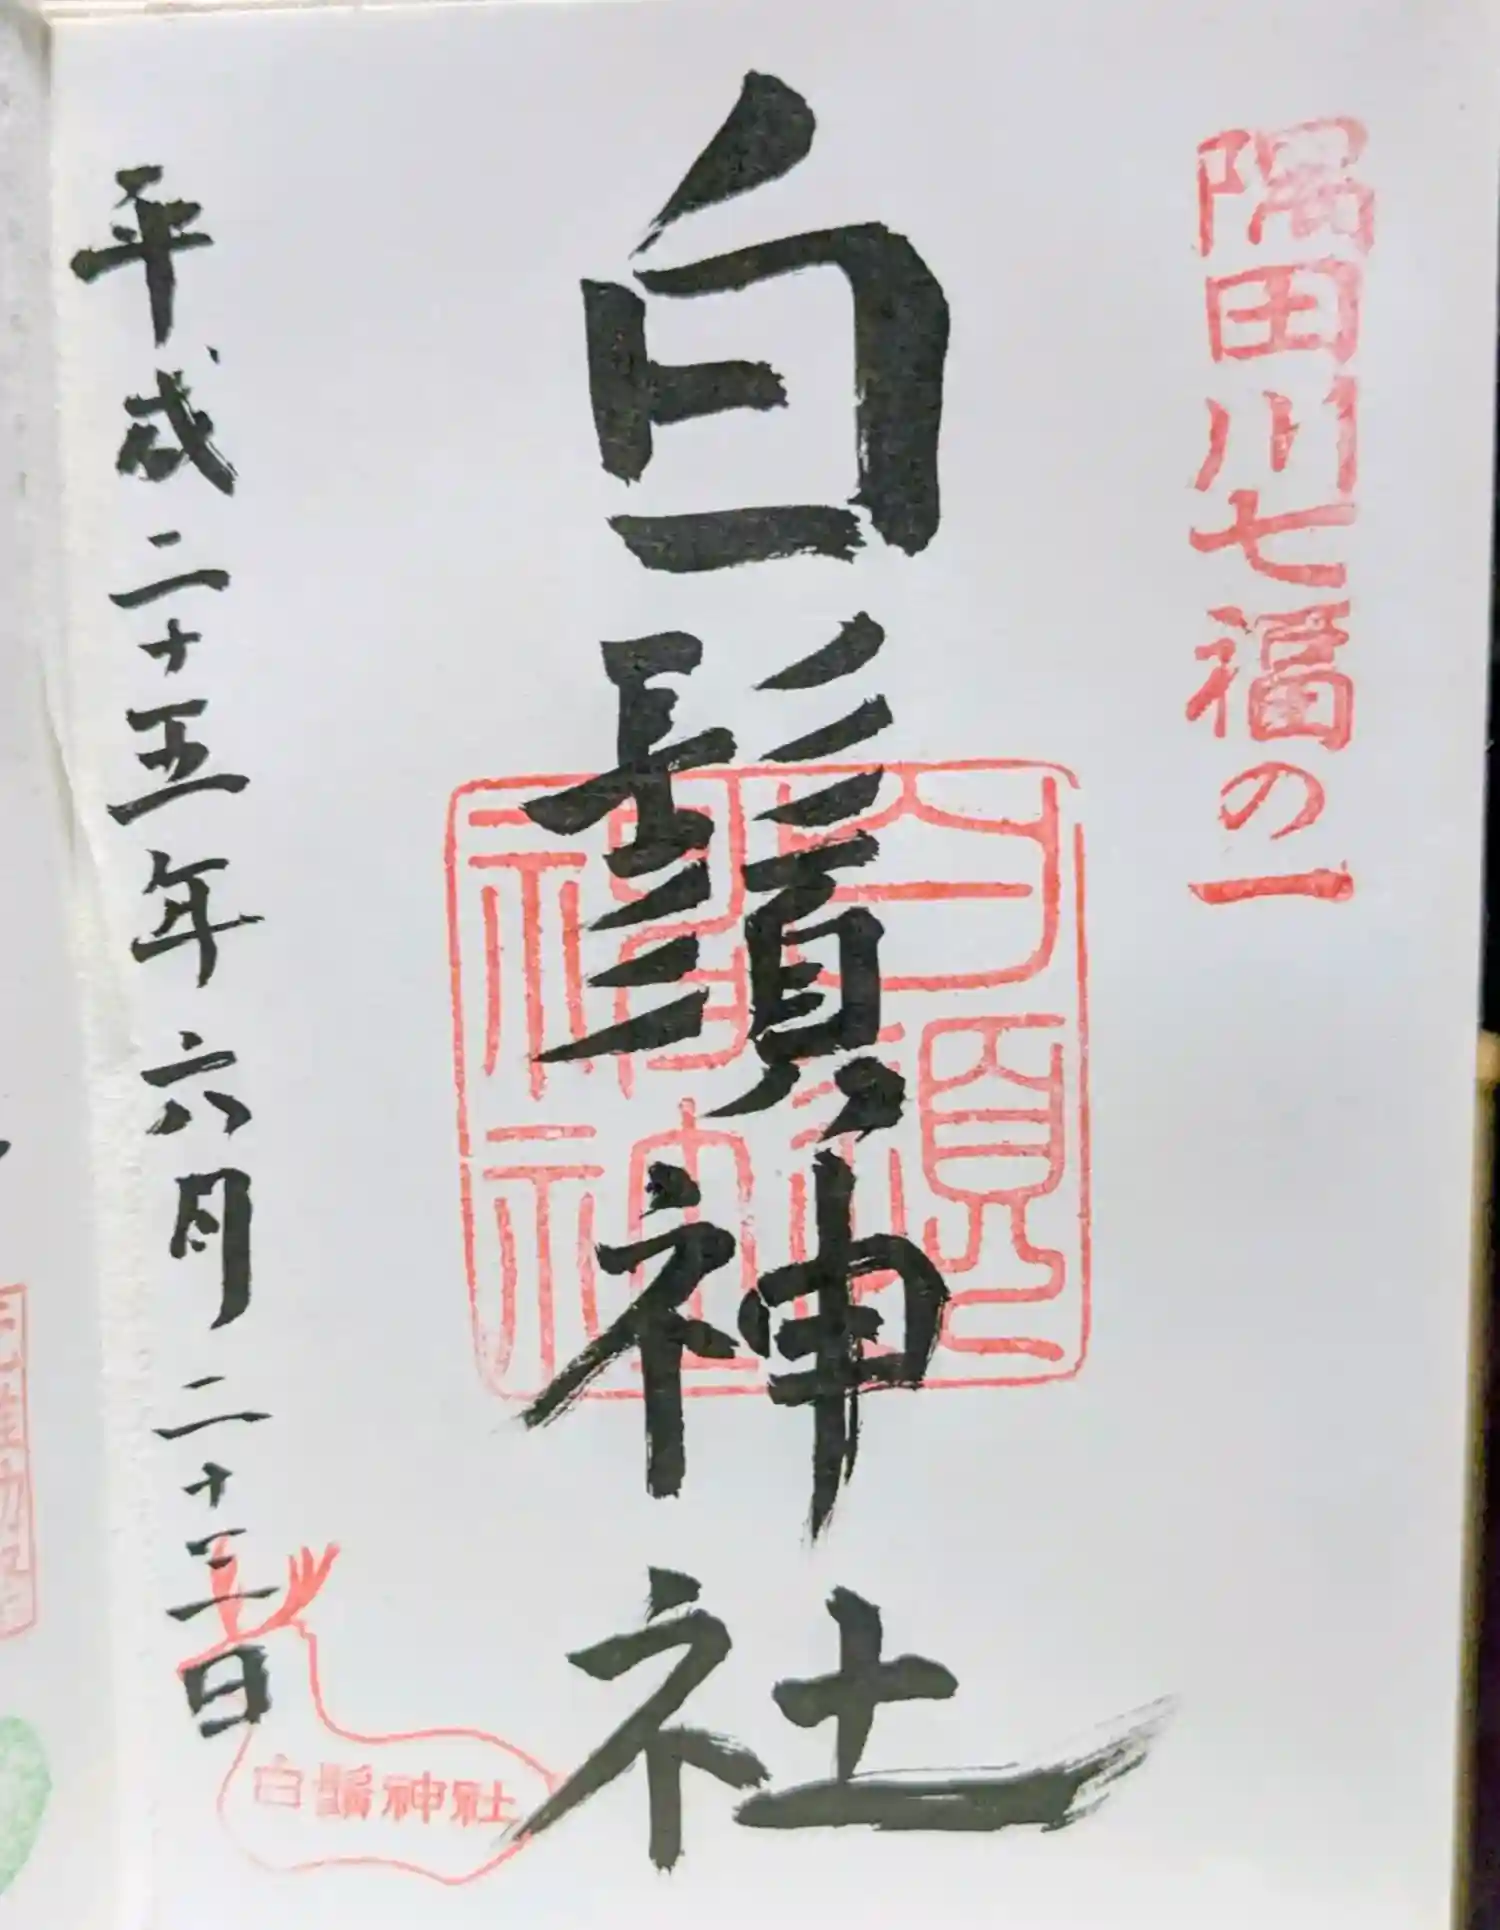 隅田川七福の一
白鬚神社
白須神社
平成二十五年六月二十三日
白鬚神社